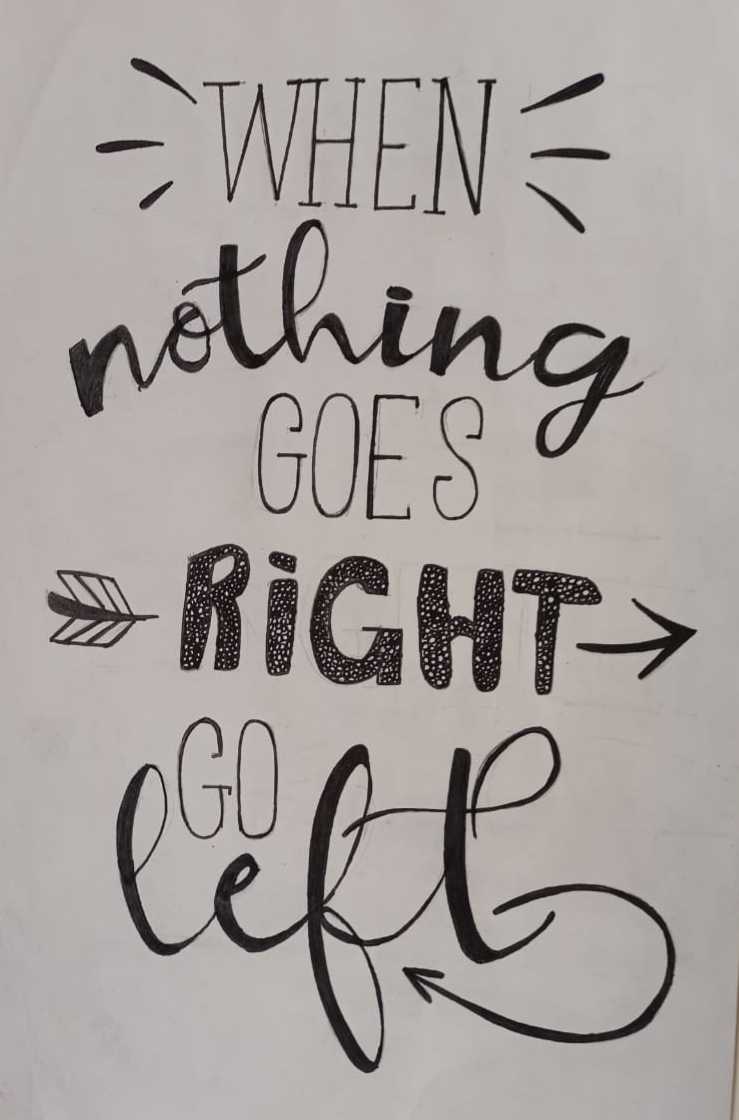 WHEN
nothing
GOES
RiGHT
GO
left